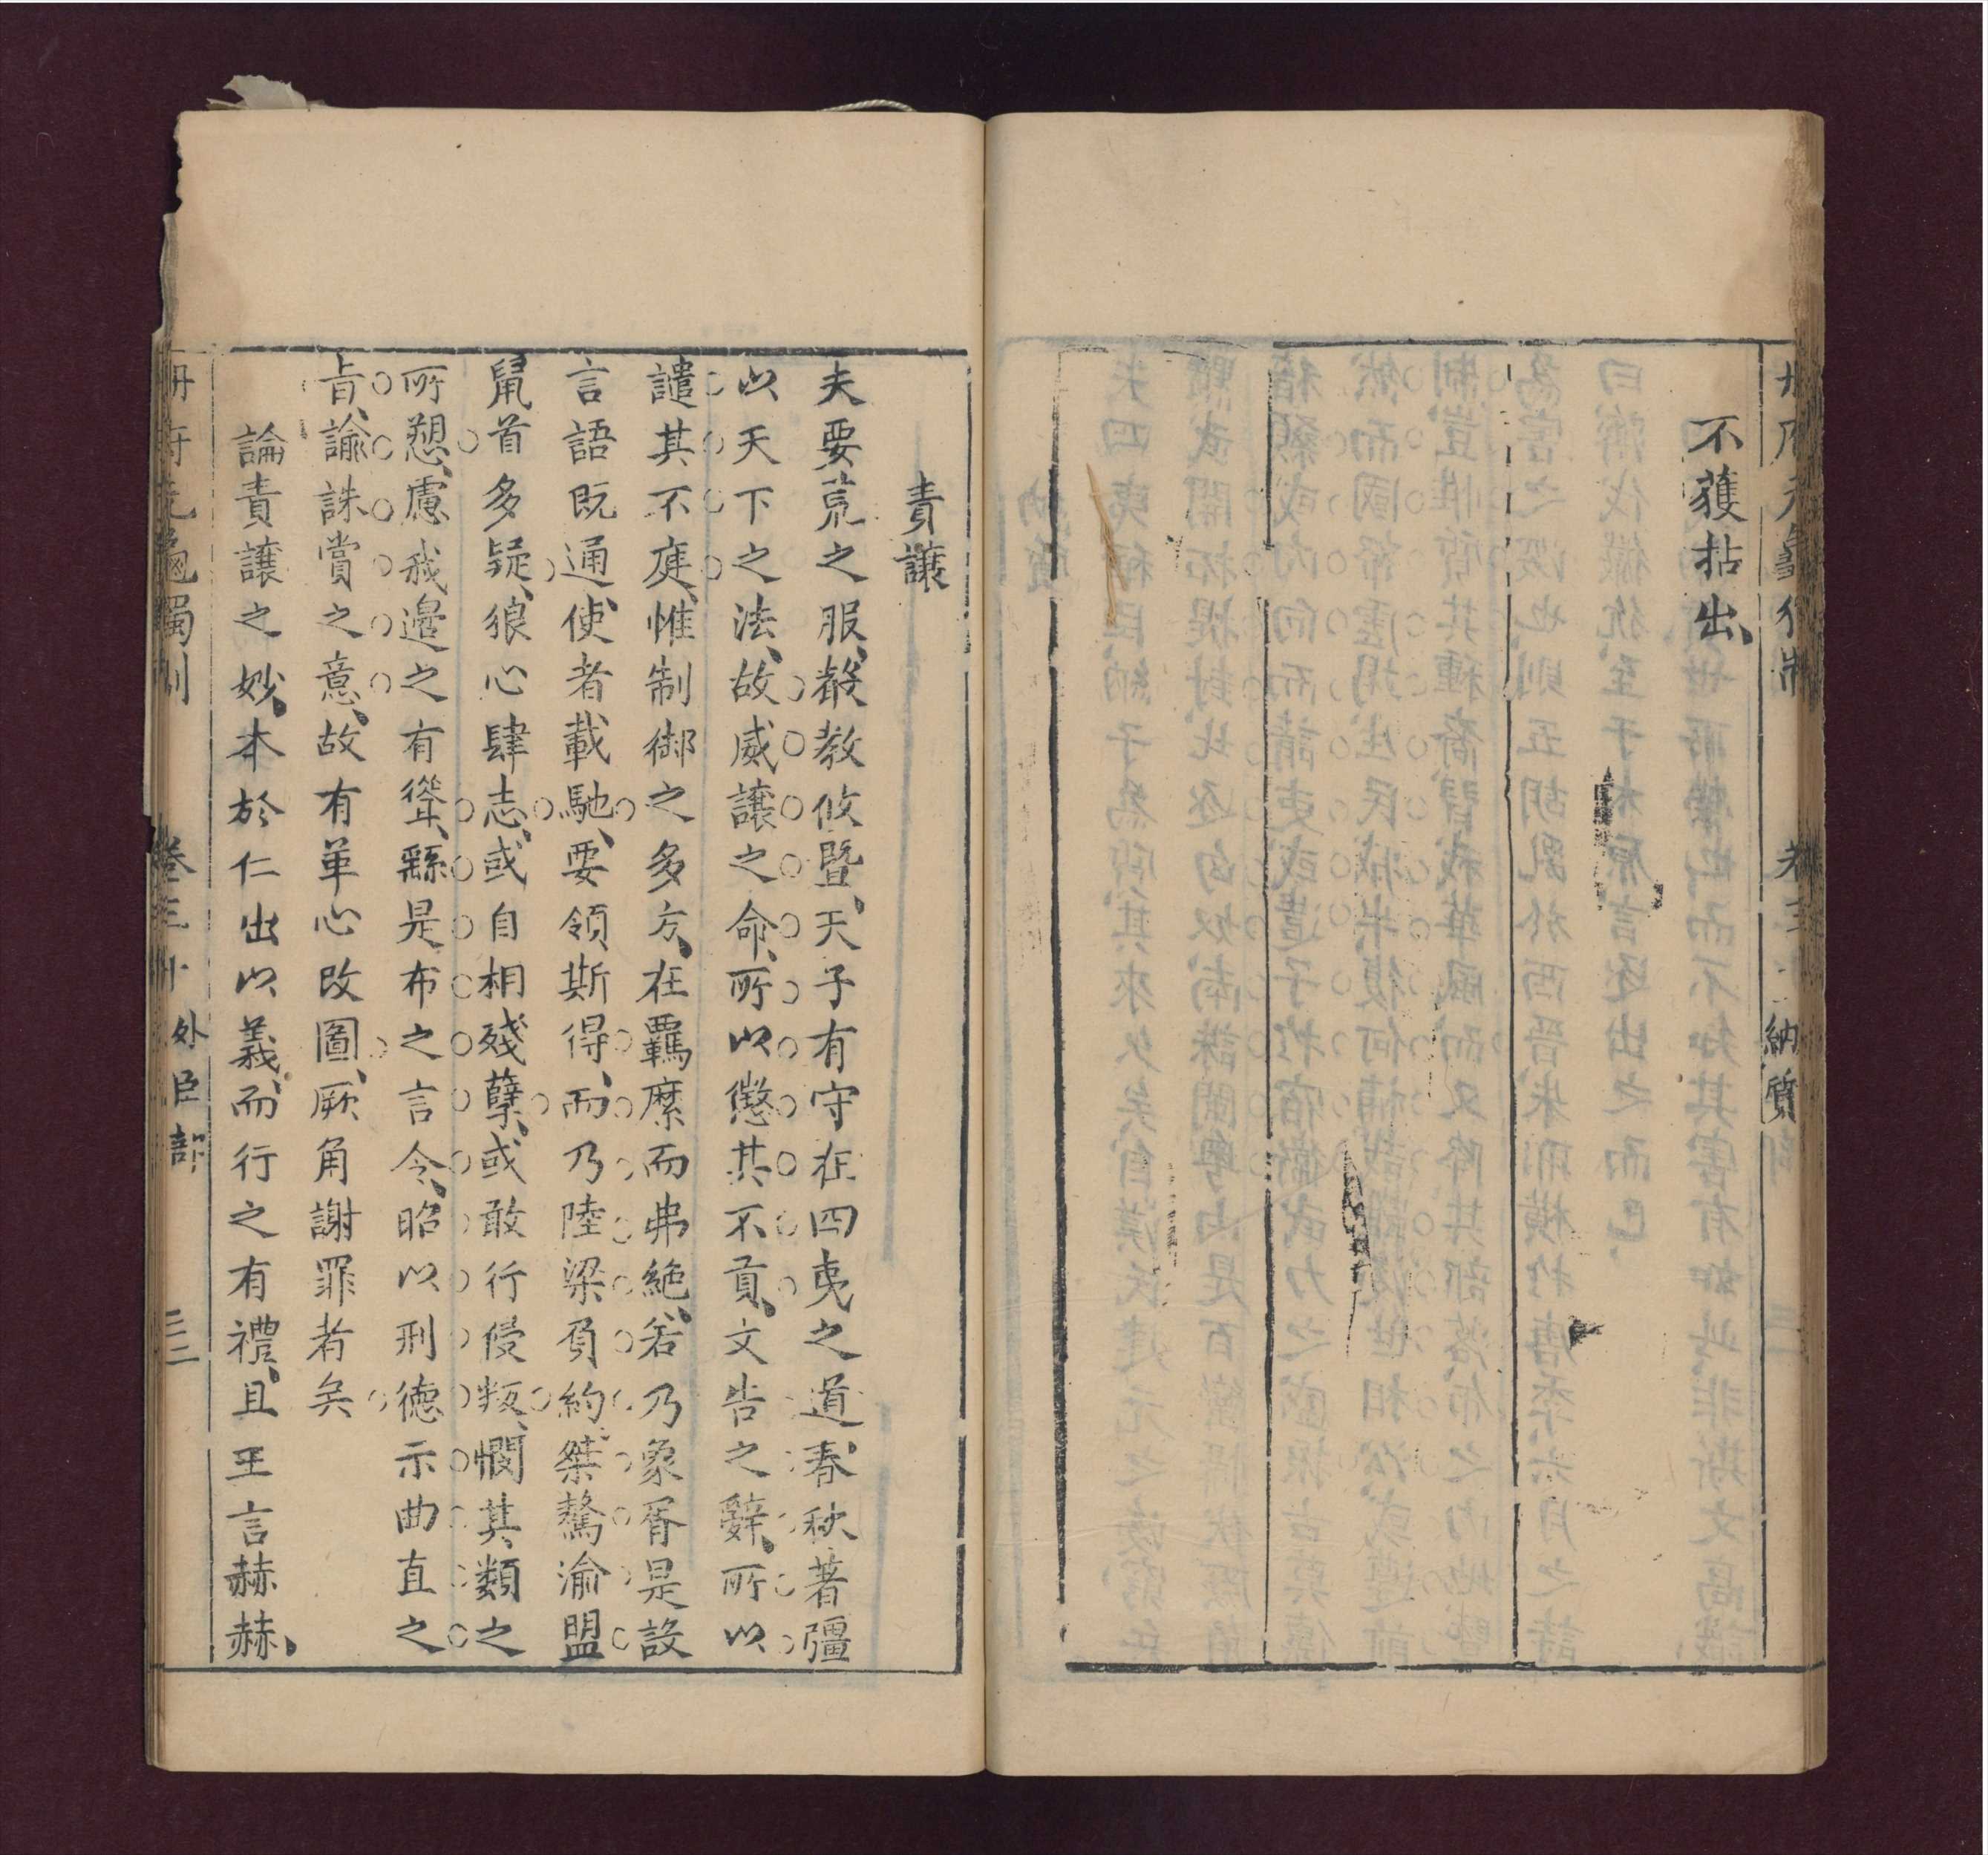 不獲拈出
納質
責讓
夫要荒之服聲教攸曁天子有守在四夷之道春秋著彊
以天下之法故威讓之命所以懲其不貢文告之辭所以
譴其不庭惟制御之多方在羈縻而弗絶若乃象胥是設
言語既通使者載馳要領斯得而乃陸梁負約桀驁渝盟
鼠首多疑狼心肆志或自相殘孽或敢行侵叛憫其類之
所愬慮我邊之有聳繇是布之言令昭以刑德示曲直之
旨諭誅賞之意故有革心改圖厥角謝罪者矣
論責讓之妙本於仁出以義而行之有禮且王言赫赫
冊府元龜獨制 卷三十 外臣部 三二